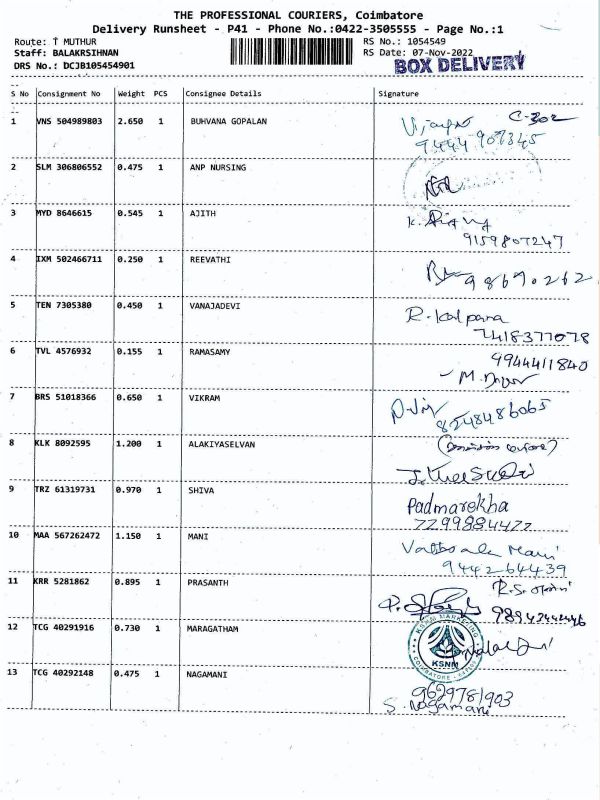 THE PROFESSIONAL COURIERS, Coimbatore
Delivery Runsheet - P41 - Phone No.:0422-3505555 - Page No.:1
Route: T MUTHUR RS No.: 1054549
Staff: BALAKRSIHNAN RS Date: 07-Nov-2022
DRS No.: DCJB105454901 BOX DELIVERY
S No Consignment No Weight PCS Consignee Details Signature
1 VNS 504989803 2.650 1 BUHVANA GOPALAN C-302
9444 907345
2 SLM 306806552 0.475 1 ANP NURSING
3 MYD 8646615 0.545 1 AJITH K.
9159807247
4 IXM 502466711 0.250 1 REEVATHI
5 TEN 7305380 0.450 1 VANAJADEVI R. Kalpana
7418377078
6 TVL 4576932 0.155 1 RAMASAMY 9944411840
7 BRS 51018366 0.650 1 VIKRAM
8248486065
8 KLK 8092595 1.200 1 ALAKIYASELVAN
9 TRZ 61319731 0.970 1 SHIVA Padmarekha
7299884477
10 MAA 567262472 1.150 1 MANI Vatsala Mani
944264439
11 KRR 5281862 0.895 1 PRASANTH
12 TCG 40291916 0.730 1 MARAGATHAM KSNM MARKETING
KSNM
COIMBATORE
13 TCG 40292148 0.475 1 NAGAMANI 9629781903
S. Nagamani